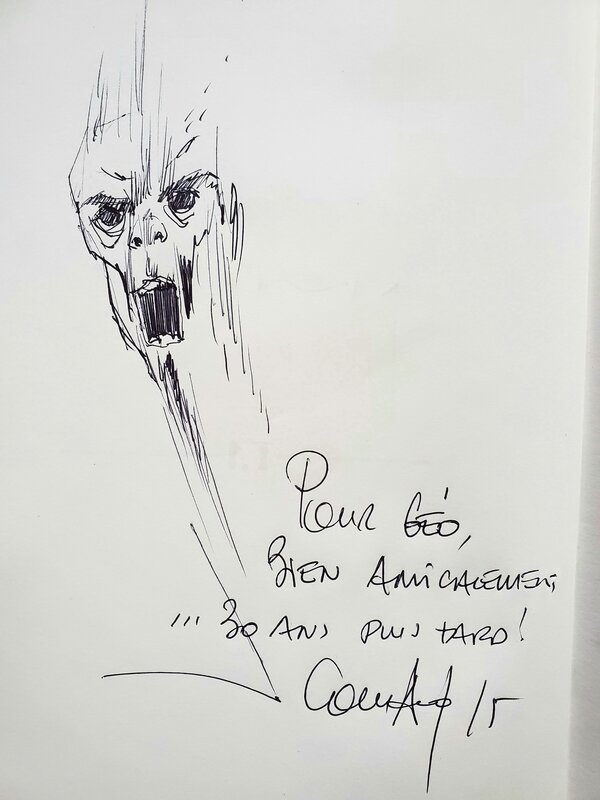 Pour GÉO,
BIEN AMICALEMENT
... 30 ANS PLUS TARD!
/15